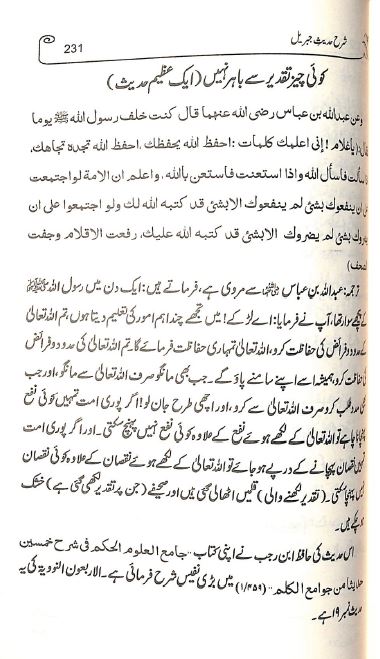 شرح حدیث جبریل
231
کوئی چیز تقدیر سے باہر نہیں (ایک عظیم حدیث)
وعن عبدالله بن عباس رضى الله عنهما قال كنت خلف رسول الله ﷺ يوما
يا غلام ! إنى اعلمك كلمات : احفظ الله يحفظك. احفظ الله تجده تجاهك،
سألت فاسأل الله واذا استعنت فاستعن بالله، واعلم ان الامة لواجتمعت
ان ينفعوك بشئ لم ينفعوك الابشئ قد كتبه الله لك ولو اجتمعوا على ان
بشئ لم يضروك الابشئ قد كتبه الله عليك، رفعت الاقلام وجفت
ترجمہ: عبداللہ بن عباس رضی اللہ عنہما سے مروی ہے، فرماتے ہیں: ایک دن میں رسول اللہ ﷺ
کے پیچھے سوار تھا، آپ نے فرمایا: اے لڑکے! میں تجھے چند اہم امور کی تعلیم دیتا ہوں، تم اللہ تعالیٰ
کے حدود و فرائض کی حفاظت کرو، اللہ تعالیٰ تمہاری حفاظت فرمائے گا، تم اللہ تعالیٰ کی حدود و فرائض
حفاظت کرو، ہمیشہ اسے اپنے سامنے پاؤ گے۔ جب بھی مانگو صرف اللہ تعالیٰ سے مانگو، اور جب
مدد طلب کرو صرف اللہ تعالیٰ سے کرو، اور اچھی طرح جان لو! اگر پوری امت تمہیں کوئی نفع
چاہے تو اللہ تعالیٰ کے لکھے ہوئے نفع کے علاوہ کوئی نفع نہیں پہنچا سکتی۔ اور اگر پوری امت
نقصان پہنچانے کے درپے ہو جائے تو اللہ تعالیٰ کے لکھے ہوئے نقصان کے علاوہ کوئی نقصان
پہنچا سکتی۔ (تقدیر لکھنے والی) قلمیں اٹھالی گئی ہیں اور صحیفے (جن پر تقدیر لکھی گئی ہے) خشک
ہیں۔
اس حدیث کی حافظ ابن رجب نے اپنی کتاب ”جامع العلوم الحكم فى شرح خمسين
حديثا من جوامع الكلم“ (۱/۴۵۹) میں بڑی نفیس شرح فرمائی ہے۔ الاربعون النوویة کی یہ
حدیث نمبر ۱۹ ہے۔